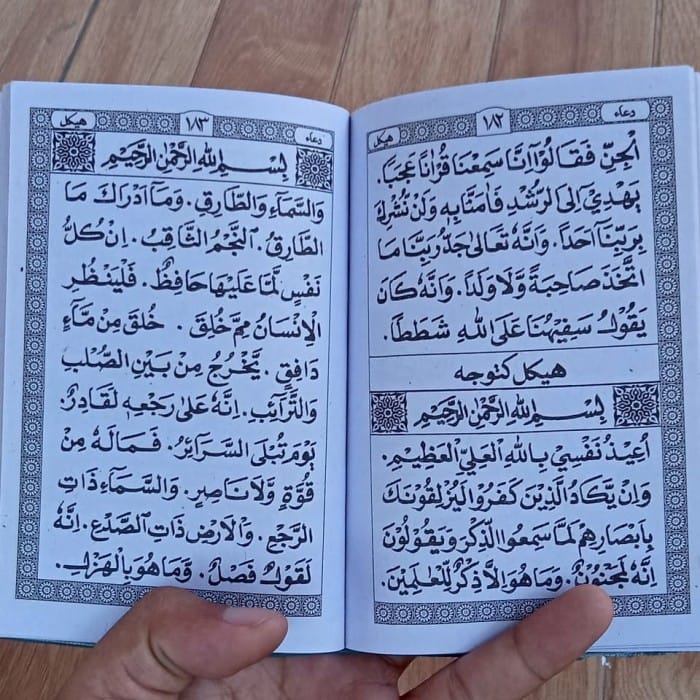 دعاء ١٨٢ هيكل
الْجِنِّ فَقَالُوْا اِنَّا سَمِعْنَا قُرْاٰنًا عَجَبًا.
يَهْدِيْ اِلَى الرُّشْدِ فَاٰمَنَّابِهِ وَلَنْ نُشْرِكَ
بِرَبِّنَآ اَحَدًا. وَاَنَّهُ تَعَالٰى جَدُّ رَبِّنَا مَا
اتَّخَذَ صَاحِبَةً وَّلَا وَلَدًا. وَاَنَّهُ كَانَ
يَقُوْلُ سَفِيْهُنَا عَلَى اللهِ شَطَطًا.
هيكل كتوجه
بِسْمِ اللهِ الرَّحْمٰنِ الرَّحِيْمِ
اُعِيْذُ نَفْسِيْ بِاللهِ الْعَلِيِّ الْعَظِيْمِ.
وَاِنْ يَّكَادُ الَّذِيْنَ كَفَرُوْا لَيُزْلِقُوْنَكَ
بِاَبْصَارِهِمْ لَمَّا سَمِعُوا الذِّكْرَ وَيَقُوْلُوْنَ
اِنَّهُ لَمَجْنُوْنٌ. وَمَا هُوَ اِلَّا ذِكْرٌ لِّلْعٰلَمِيْنَ.
دعاء ١٨٣ هيكل
بِسْمِ اللهِ الرَّحْمٰنِ الرَّحِيْمِ
وَالسَّمَآءِ وَالطَّارِقِ. وَمَآ اَدْرَاكَ مَا
الطَّارِقُ. النَّجْمُ الثَّاقِبُ. اِنْ كُلُّ
نَفْسٍ لَّمَّا عَلَيْهَا حَافِظٌ. فَلْيَنْظُرِ
الْاِنْسَانُ مِمَّ خُلِقَ. خُلِقَ مِنْ مَّآءٍ
دَافِقٍ. يَّخْرُجُ مِنْ بَيْنِ الصُّلْبِ
وَالتَّرَآئِبِ. اِنَّهُ عَلٰى رَجْعِهِ لَقَادِرٌ.
يَوْمَ تُبْلَى السَّرَائِرُ. فَمَالَهُ مِنْ
قُوَّةٍ وَّلَا نَاصِرٍ. وَالسَّمَآءِ ذَاتِ
الرَّجْعِ. وَالْاَرْضِ ذَاتِ الصَّدْعِ. اِنَّهُ
لَقَوْلٌ فَصْلٌ. وَّمَا هُوَ بِالْهَزْلِ.